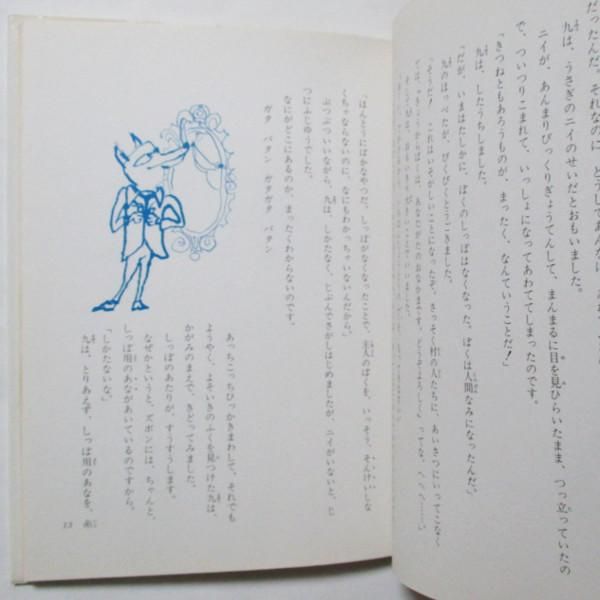 だったんだ。それなのに、どうしてあんなに、あわ
九は、うさぎのニイのせいだとおもいました。
ニイが、あんまりびっくりぎょうてんして、まんまるに目を見ひらいたまま、つっ立っていたの
で、ついつりこまれて、いっしょになってあわててしまったのです。
「きつねともあろうものが、まったく、なんていうことだ！」
九は、したうちしました。
「だが、いまはたしかに、ぼくのしっぽはなくなった。ぼくは人間なみになったんだ。」
九のほっぺたが、ぴくぴくとうごきました。
「そうだ！ これはいそがしいことになったぞ。さっそく村の人たちに、あいさつにいってこなく
ては。『きょうからぼくは、あなたがたのおなかまです。どうぞよろしく』ってな。へへへ……」
「ほんとうにばかなやつだ。しっぽがなくなったことで、主人のぼくを、いっそう、そんけいしな
くちゃならないのに、なにもわかっちゃいないんだから。」
ぶつぶついいながら、九は、しかたなく、じぶんでさがしはじめましたが、ニイがいないと、じ
つにふじゆうでした。
なにがどこにあるのか、まったくわからないのです。
ガタ バタン ガタガタ バタン
あっちこっちひっかきまわして、それでも
ようやく、よそいきのふくを見つけた九は、
かがみのまえで、きどってみました。
しっぽのあたりが、すうすうします。
なぜかというと、ズボンには、ちゃんと、
しっぽ用のあながあいているのですから。
「しかたないな。」
九は、とりあえず、しっぽ用のあなを、
13